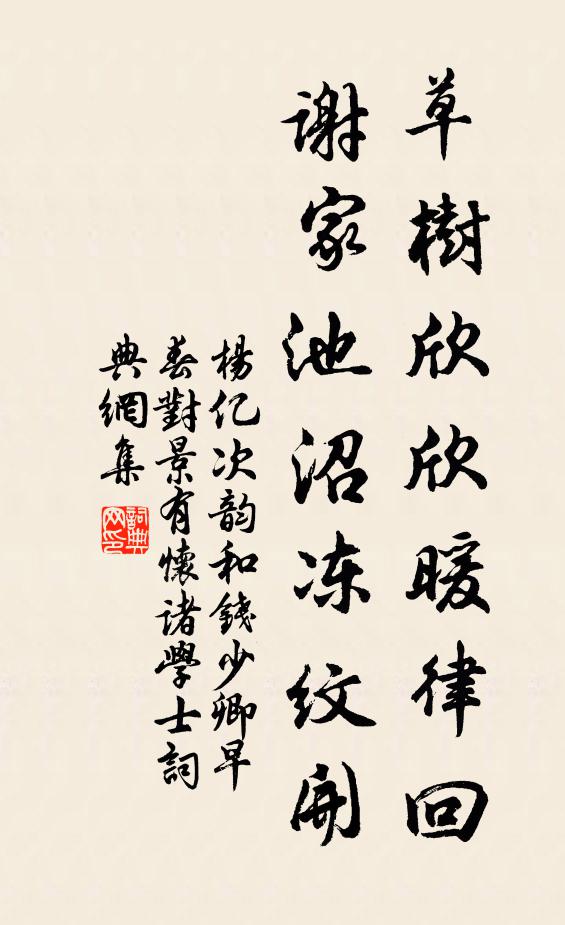 草樹欣欣暖律回
謝家池沼冻紋開
楊亿次韵和錢少卿早
春對景有懷诸學士詞
典網集
詞典网印